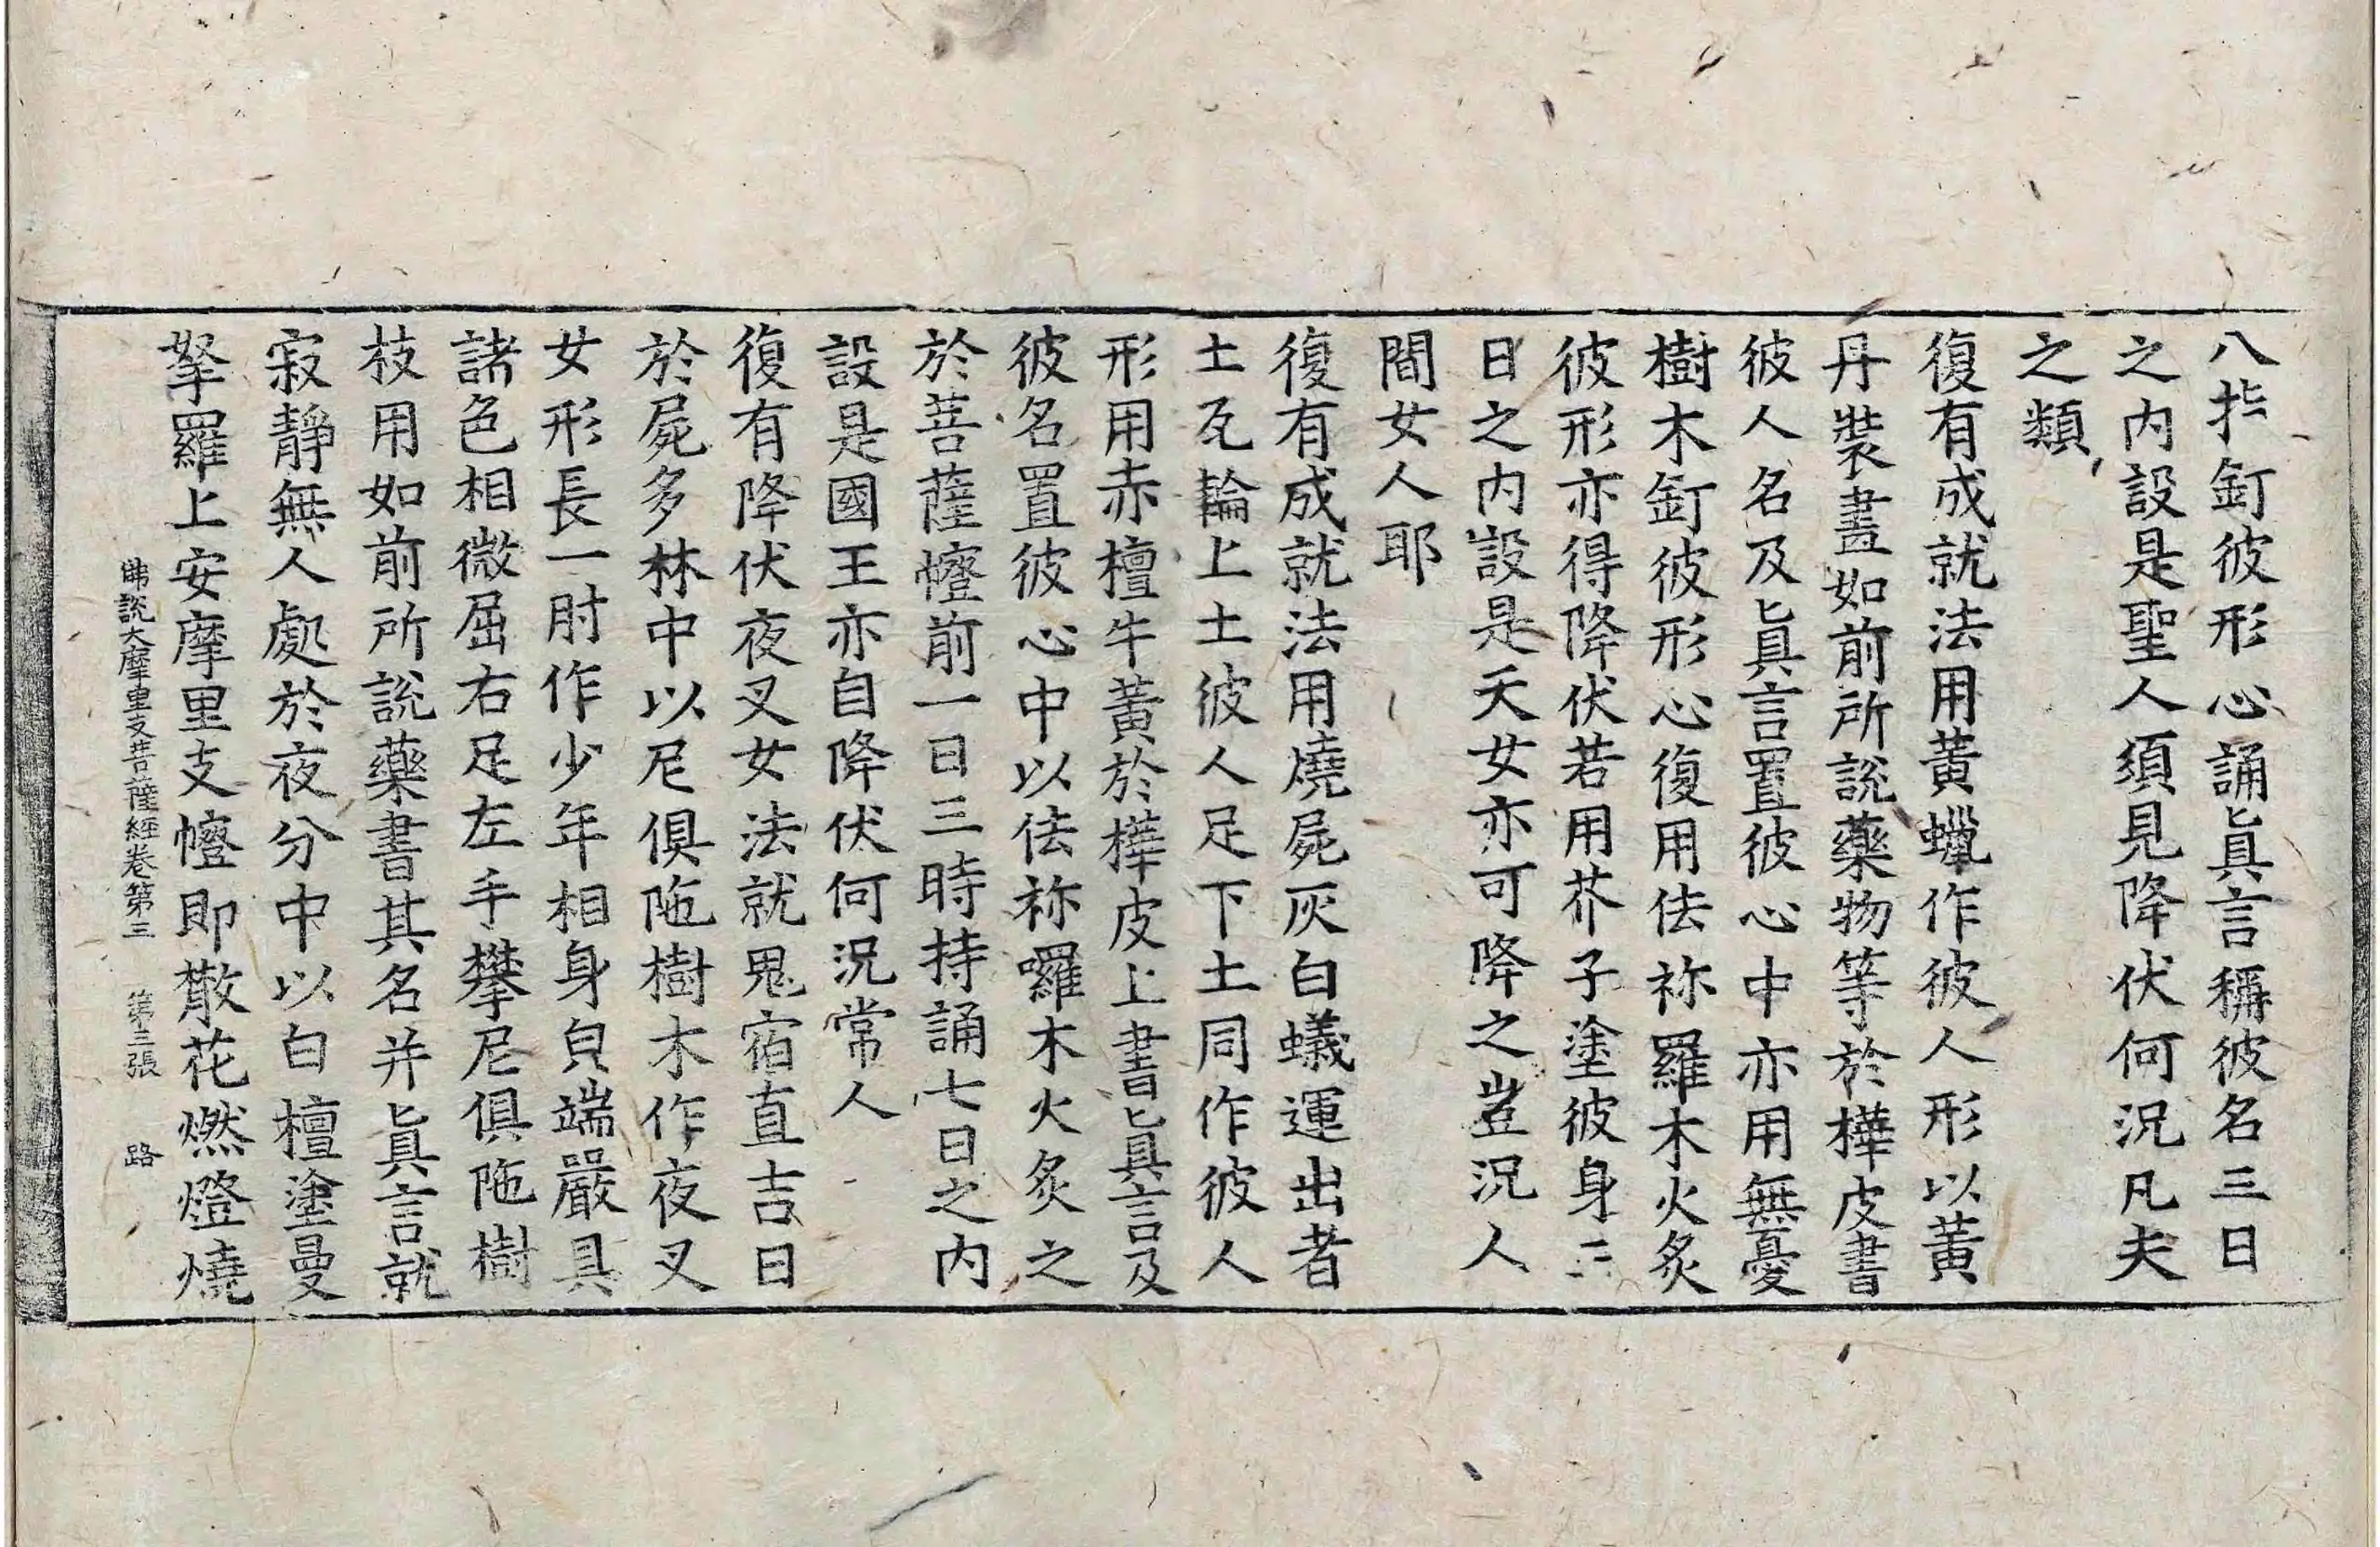 八指釘彼形心誦眞言稱彼名三日
之內設是聖人須見降伏何況凡夫
之類
復有成就法用黃蠟作彼人形以黃
丹裝畫如前所說藥物等於樺皮書
彼人名及眞言置彼心中亦用無憂
樹木釘彼形心復用佉祢羅木火炙
彼形亦得降伏若用芥子塗彼身二
日之內設是天女亦可降之豈況人
間女人耶
復有成就法用燒屍灰白蟻運出者
土瓦輪上土彼人足下土同作彼人
形用赤檀牛黃於樺皮上書眞言及
彼名置彼心中以佉祢囉木火炙之
於菩薩㡧前一日三時持誦七日之內
設是國王亦自降伏何況常人
復有降伏夜叉女法就鬼宿直吉日
於屍多林中以尼俱陁樹木作夜叉
女形長一肘作少年相身皃端嚴具
諸色相微屈右足左手攀尼俱陁樹
枝用如前所說藥書其名并眞言就
寂靜無人處於夜分中以白檀塗曼
拏羅上安摩里支㡧即散花燃燈燒
佛說大摩里支菩薩經卷第三　第三張　路